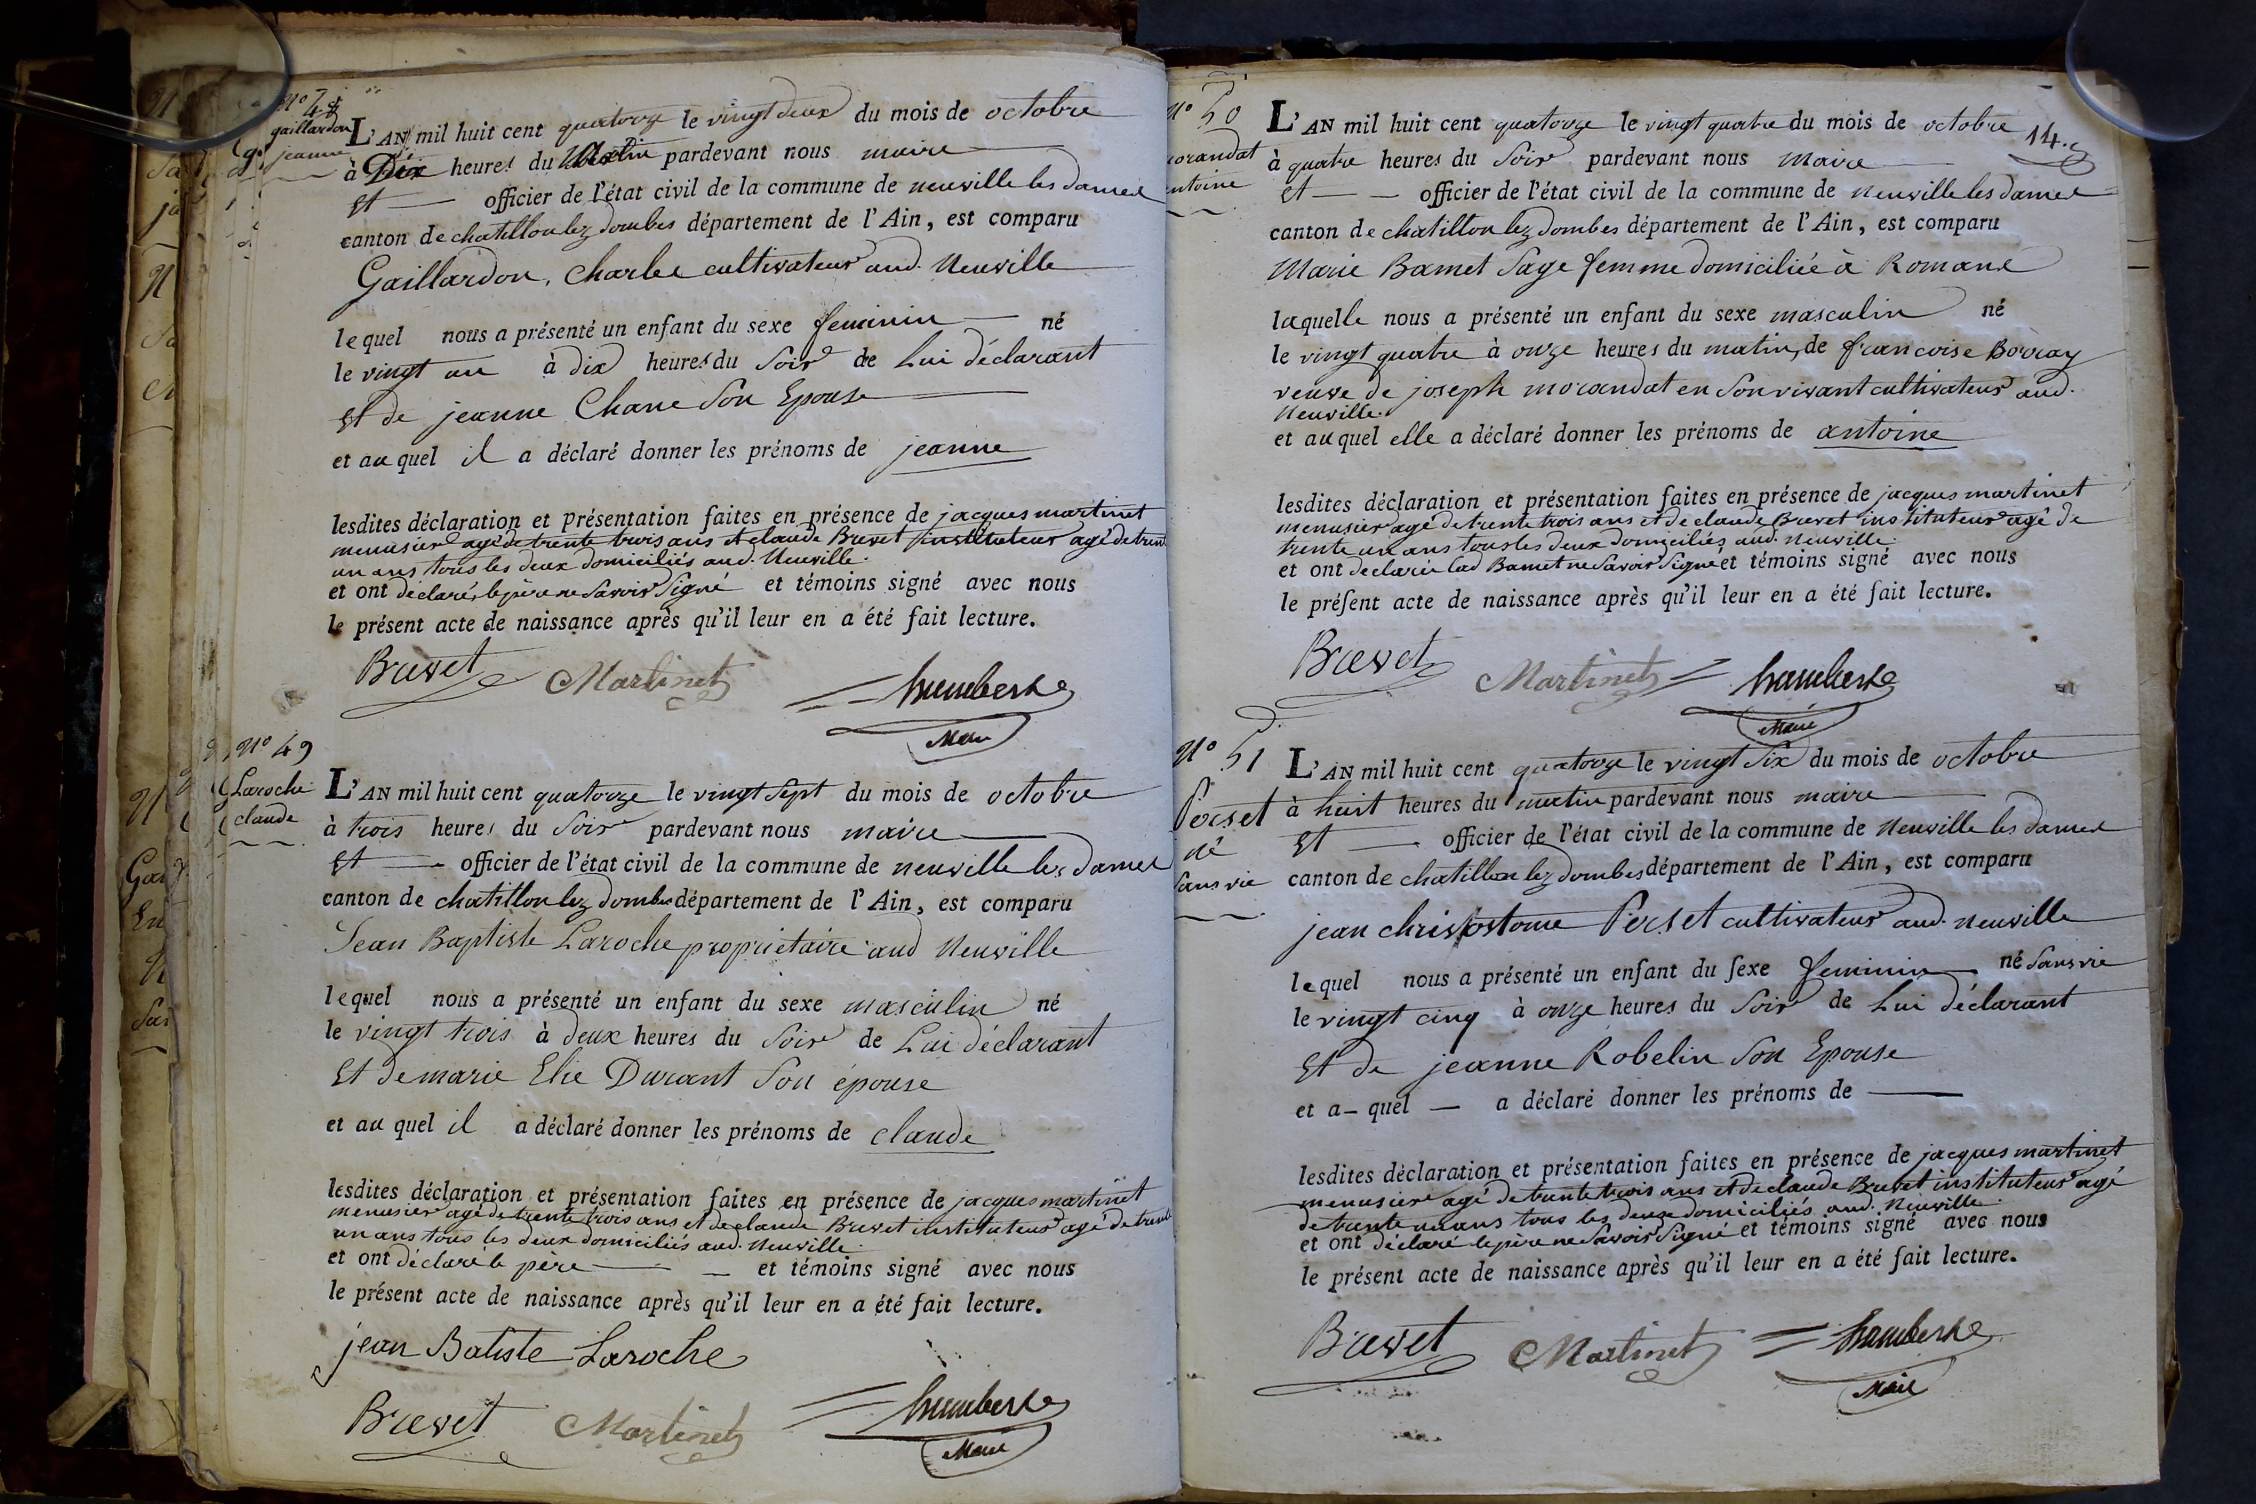 N° 48
gaillardon
jeanne
L'AN mil huit cent quatorze le vingt deux du mois de octobre
à Dix heures du Matin pardevant nous maire
et officier de l'état civil de la commune de neuville les dames
canton de chatillon lez dombes département de l'Ain, est comparu
Gaillardon, Charles cultivateur aud. Neuville
lequel nous a présenté un enfant du sexe feminin né
le vingt un à dix heures du Soir de Lui déclarant
Et de jeanne Chane Son Epouse
et au quel il a déclaré donner les prénoms de jeanne
lesdites déclaration et présentation faites en présence de jacques martinet
menusier agé de trente trois ans et claude Brevet instituteur agé de trente
un ans tous les deux domiciliés aud. Neuville.
et ont déclaré, le père ne Savoir Signé et témoins signé avec nous
le présent acte de naissance après qu'il leur en a été fait lecture.
Brevet Martinet humbert
Maire
N° 49
Laroche
claude
L'AN mil huit cent quatorze le vingt Sept du mois de octobre
à trois heures du Soir pardevant nous maire
et officier de l'état civil de la commune de neuville les Dames
canton de chatillon lez dombes département de l'Ain, est comparu
Jean Baptiste Laroche propriétaire aud Neuville
lequel nous a présenté un enfant du sexe masculin né
le vingt trois à deux heures du Soir de Lui déclarant
Et de marie Elie Durant Son épouse
et au quel il a déclaré donner les prénoms de claude
lesdites déclaration et présentation faites en présence de jacques martinet
menusier agé de trente trois ans et de claude Brevet instituteur agé de trente
un ans tous les deux domiciliés aud. Neuville.
et ont déclaré le père et témoins signé avec nous
le présent acte de naissance après qu'il leur en a été fait lecture.
jean Batiste Laroche
Brevet Martinet humbert
Maire
14.
N° 50
morandat
antoine
L'AN mil huit cent quatorze le vingt quatre du mois de octobre
à quatre heures du Soir pardevant nous Maire
et officier de l'état civil de la commune de Neuville les Dames
canton de chatillon lez dombes département de l'Ain, est comparu
Marie Bamet Sage femme domiciliée à Romans
laquelle nous a présenté un enfant du sexe masculin né
le vingt quatre à onze heures du matin, de francoise Borray
veuve de joseph morandat en Son vivant cultivateur aud.
Neuville.
et au quel elle a déclaré donner les prénoms de antoine
lesdites déclaration et présentation faites en présence de jacques martinet
menusier agé de trente trois ans et de claude Brevet instituteur agé de
trente un ans tous les deux domiciliés aud. Neuville.
et ont declarée lad Bamet ne Savoir Signé et témoins signé avec nous
le préſent acte de naissance après qu'il leur en a été fait lecture.
Brevet Martinet humbert
Maire
N° 51
Perset
né
Sans vie
L'AN mil huit cent quatorze le vingt Six du mois de octobre
à huit heures du matin pardevant nous maire
Et officier de l'état civil de la commune de Neuville les dames
canton de chatillon lez dombes département de l'Ain, est comparu
jean christostome Perset cultivateur aud. neuville
lequel nous a présenté un enfant du ſexe feminin né Sans vie
le vingt cinq à onze heures du Soir de Lui déclarant
Et de jeanne Robelin Son Epouse
et a- quel — a déclaré donner les prénoms de —
lesdites déclaration et présentation faites en présence de jacques martinet
menusier agé de trente trois ans et de claude Brevet instituteur agé
de trente un ans tous les deux domiciliés aud. Neuville.
et ont déclaré le père ne Savoir Signé et témoins signé avec nous
le présent acte de naissance après qu'il leur en a été fait lecture.
Brevet Martinet humbert
Maire